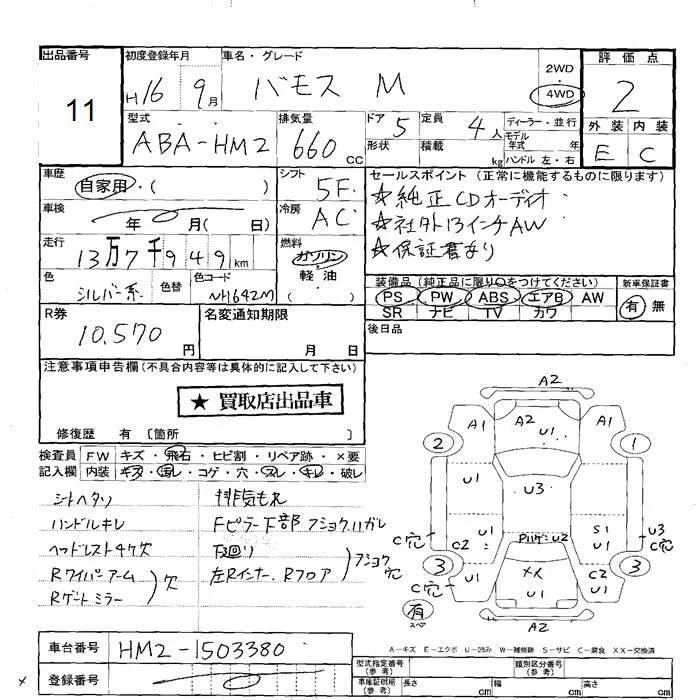 出品番号 初度登録年月 車名・グレード 評価点
11 H16年 9月 バモス M 2WD 4WD 2
型式 排気量 ドア 定員 ディーラー・並行 外装 内装
ABA-HM2 660cc 5 4人 モデル年式 年 E C
形状 積載 kg ハンドル 左・右
車歴 自家用・( ) シフト 5F
セールスポイント (正常に機能するものに限ります)
☆純正CDオーディオ
☆社外13インチAW
☆保証書あり
車検 年 月( 日) 冷房 AC
走行 13万7千949km 燃料 ガソリン 軽油 ( )
色 シルバー系 色替 色コード NH642M
装備品 (純正品に限り○をつけてください) 新車保証書
PS PW ABS エアB AW 有 無
SR ナビ TV カワ
R券 10,570円 名変通知期限 月 日
後日品
注意事項申告欄(不具合内容等は具体的に記入して下さい)
★ 買取店出品車
修復歴 有 〔箇所 〕
検査員記入欄 FW キズ・飛石・ヒビ割・リペア跡・×要
内装 キズ・汚レ・コゲ・穴・スレ・キレ・破レ
シートヘタリ 排気もれ
ハンドルキレ Fピラー下部フショクハガレ
ヘッドレスト4ケ欠 下回り
Rワイパーアーム 欠 左Rインナー、Rフロア フショク穴
Rゲートミラー
A2
A1 A2 U1 A1
2 1
U1 U3 U1
U1 S1 U3
C穴 C2 U2 U1 C穴
3 3
C穴 U1 XX C2
U1 U1
有
スペア
A2
A-キズ E-エクボ U-凹み W-補修跡 S-サビ C-腐食 XX-交換済
車台番号 HM2-1503380
登録番号
型式指定番号(参考) 類別区分番号(参考)
車庫証明用(参考) 長さ cm 幅 cm 高さ cm